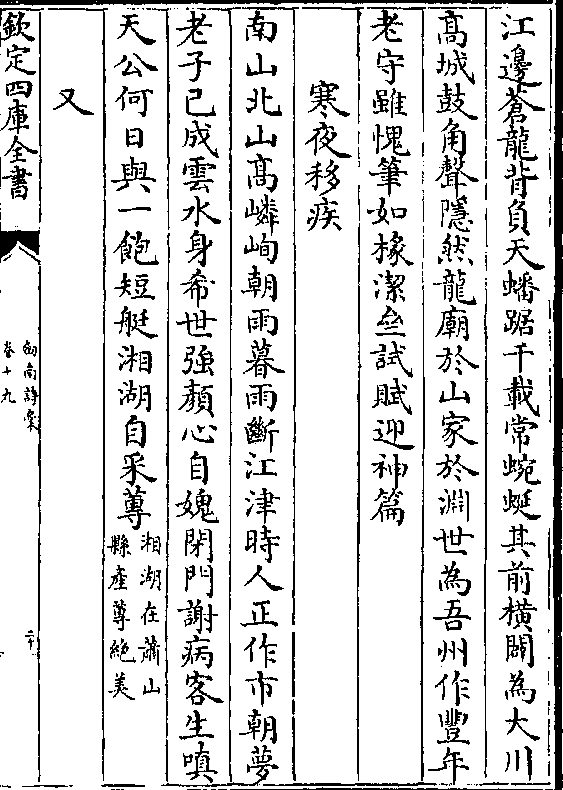 江邊蒼龍背負天蟠踞千載常蜿蜒其前橫闢為大川
高城鼓角聲隱然龍廟於山家於淵世為吾州作豐年
老守雖愧筆如椽潔壘試賦迎神篇
寒夜移疾
南山北山高嶙峋朝雨暮雨斷江津時人正作市朝夢
老子已成雲水身希世強顏心自媿閉門謝病客生嗔
天公何日與一飽短艇湘湖自采蓴湘湖在蕭山縣產蓴絶美
又
欽定四庫全書
劍南詩稾
卷十九